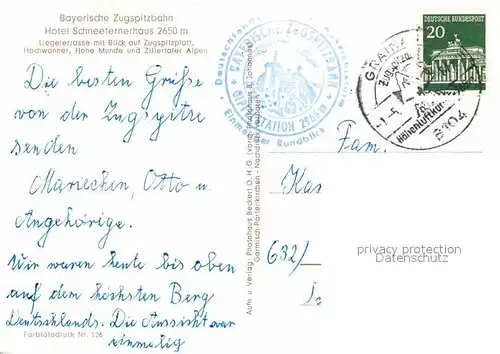 Bayerische Zugspitzbahn
Hotel Schneefernerhaus 2650 m
Liegeterrasse mit Blick auf Zugspitzplatt,
Hochwanner, Hohe Munde und Zillertaler Alpen
Die besten Grüße
von der Zugspitze
senden
Mariechen, Otto u.
Angehörige.
Wir waren heute bis oben
auf dem höchsten Berg
Deutschlands. Die Aussicht war
einmalig
Farbtiefdruck Nr. 126
BAYERISCHE ZUGSPITZBAHN
GIPFELSTATION 2966m
Einmaliger Rundblick
Aufn. u. Verlag: Photohaus Beckert O.H.G.
Garmisch-Partenkirchen
DEUTSCHE BUNDESPOST
20
GRAINAU
8104
Fam.
Kas
632/
privacy protection
Datenschutz